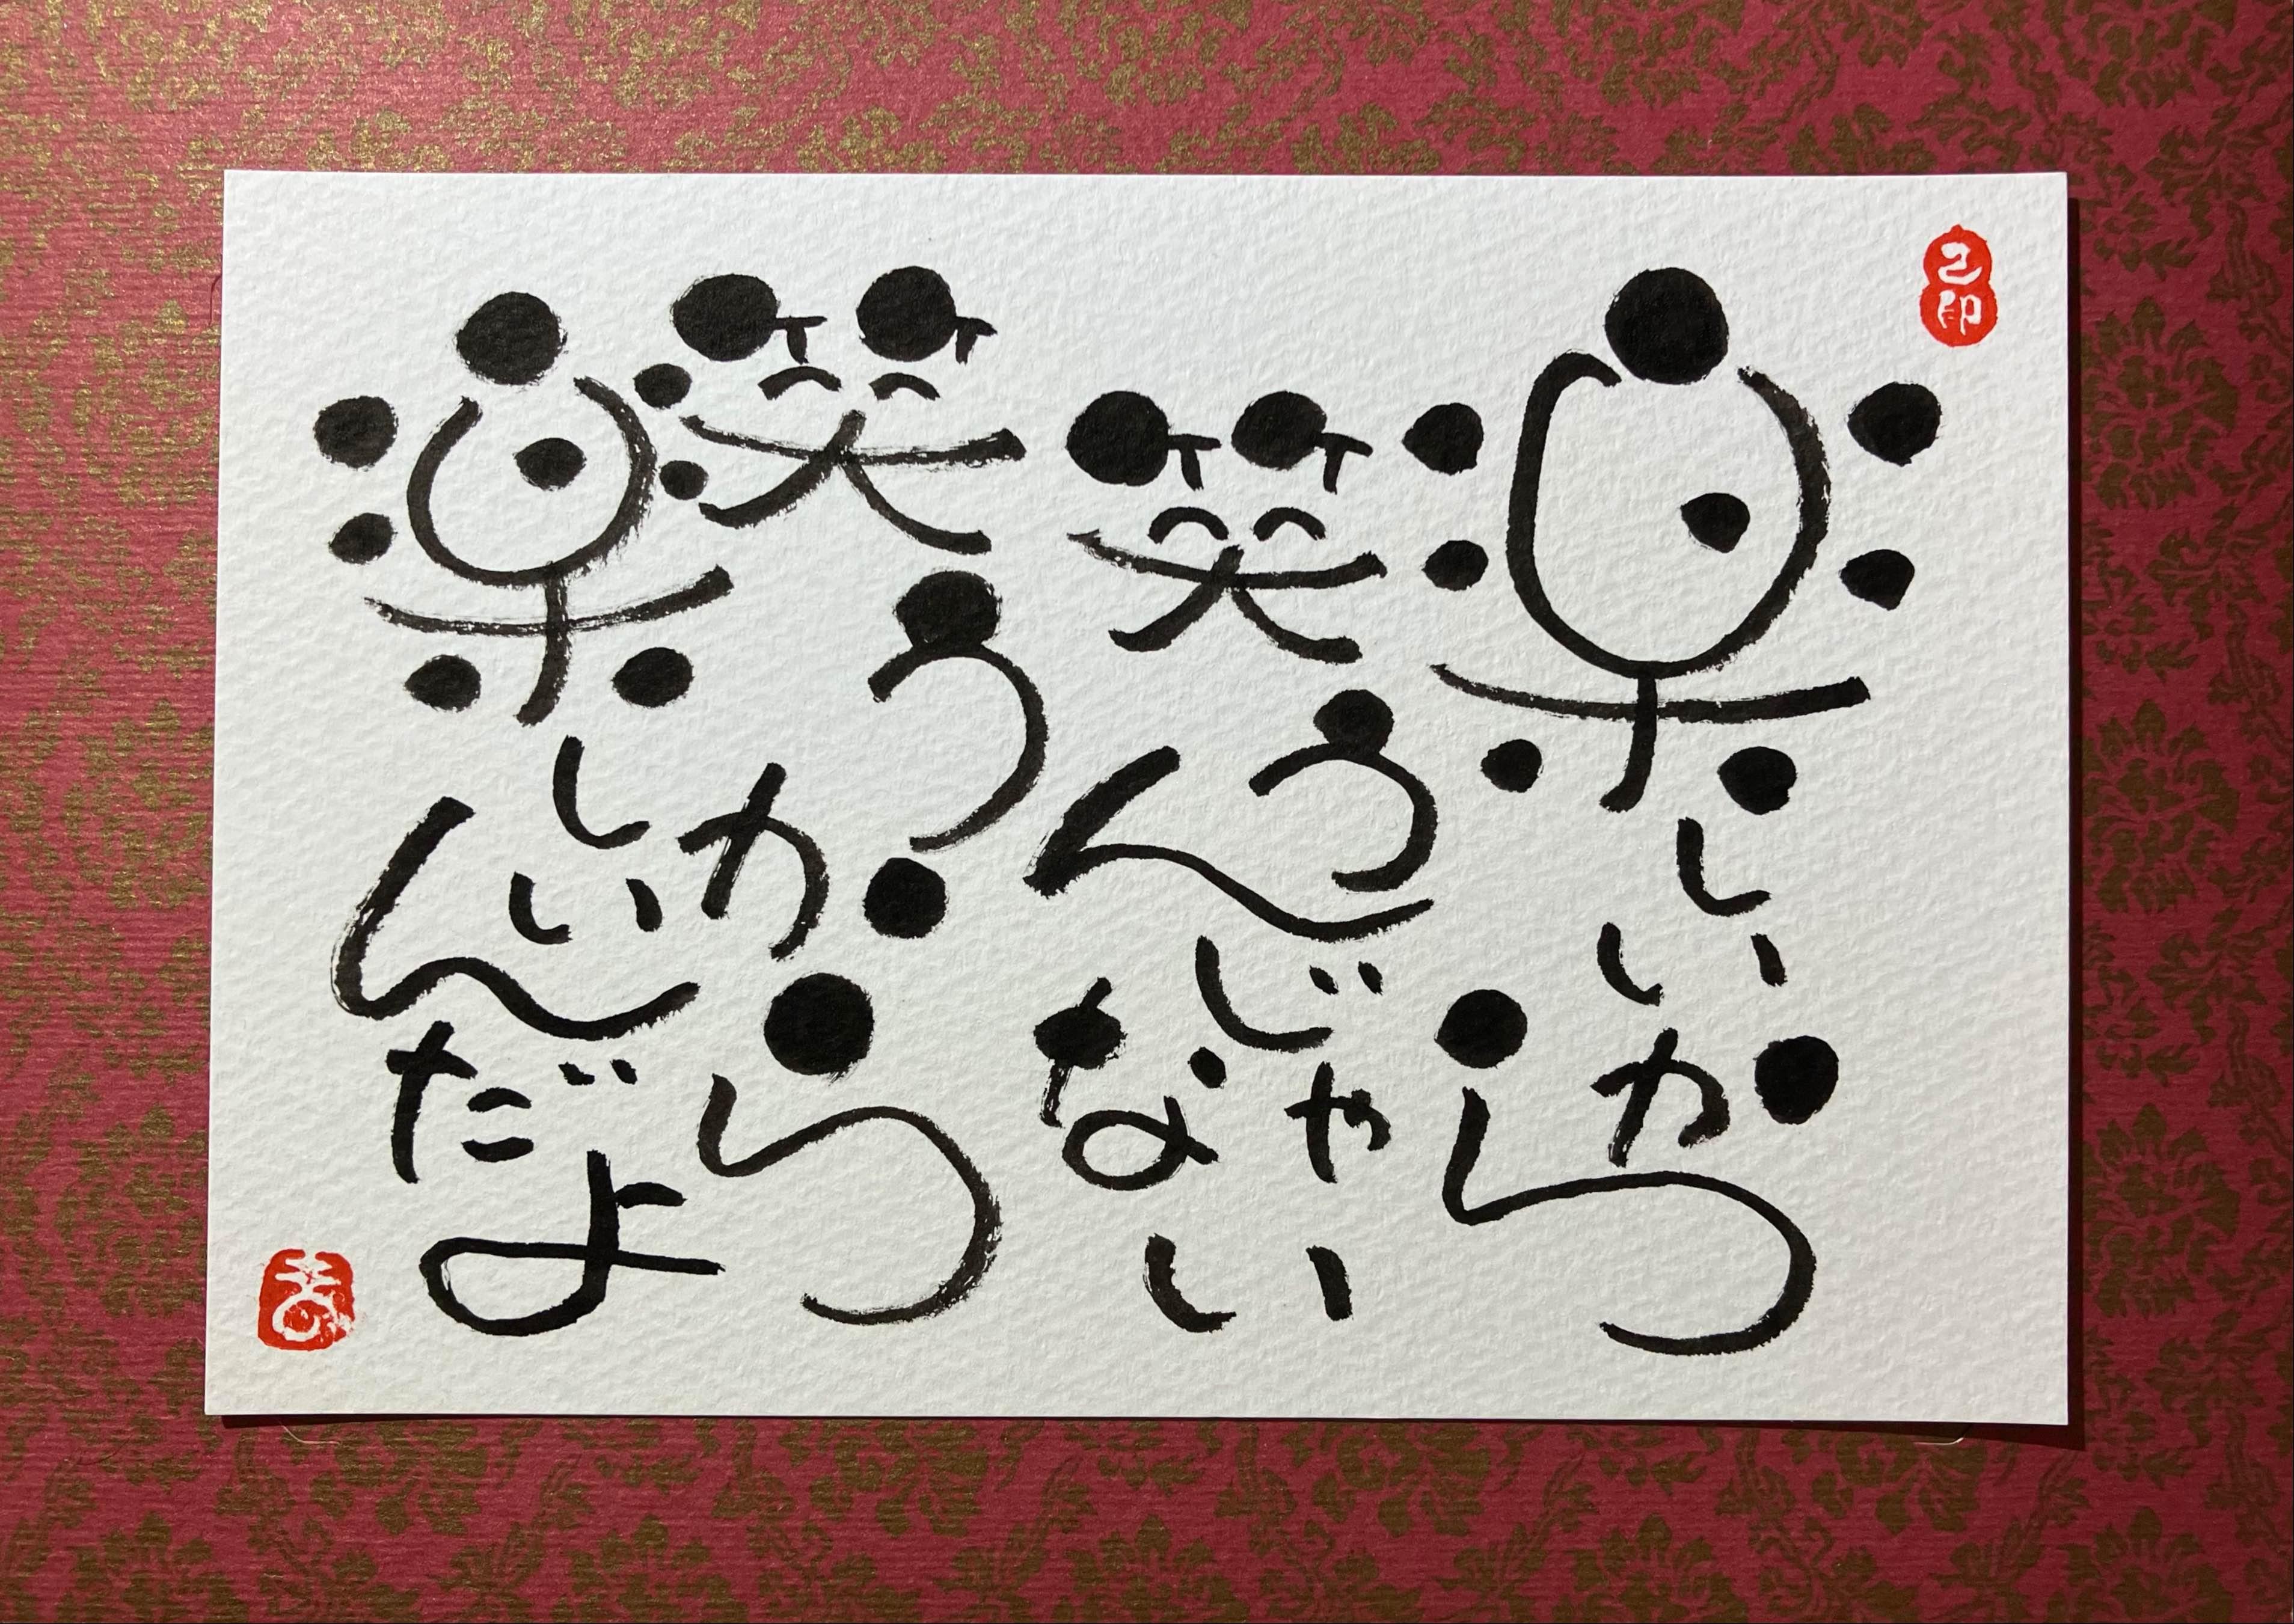 楽しいから
笑うんじゃない
笑うから
楽しいんだよ